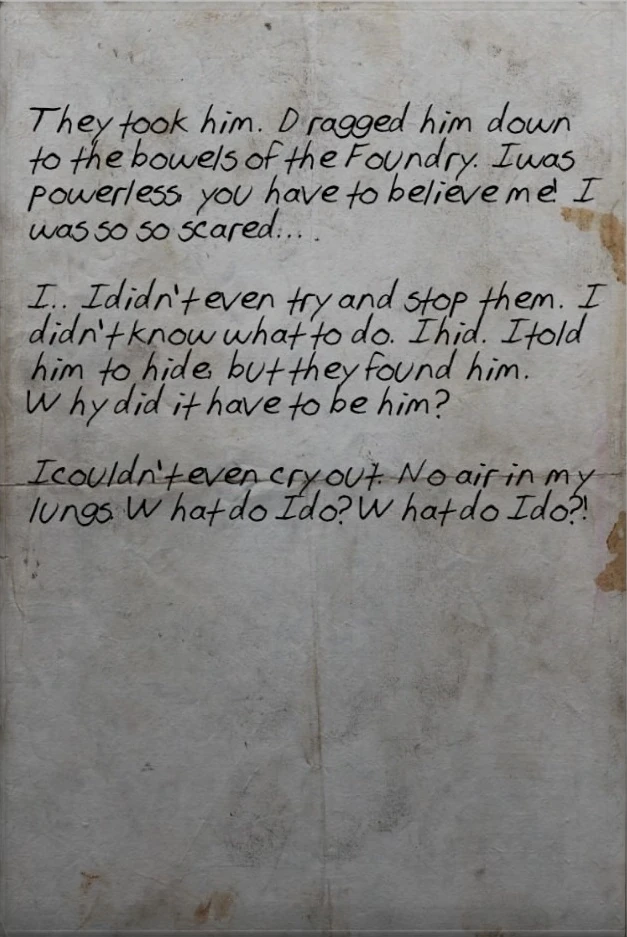 They took him. Dragged him down
to the bowels of the Foundry. I was
powerless, you have to believe me! I
was so so scared....
I.. I didn't even try and stop them. I
didn't know what to do. I hid. I told
him to hide, but they found him.
Why did it have to be him?
I couldn't even cry out. No air in my
lungs. What do I do? What do I do?!